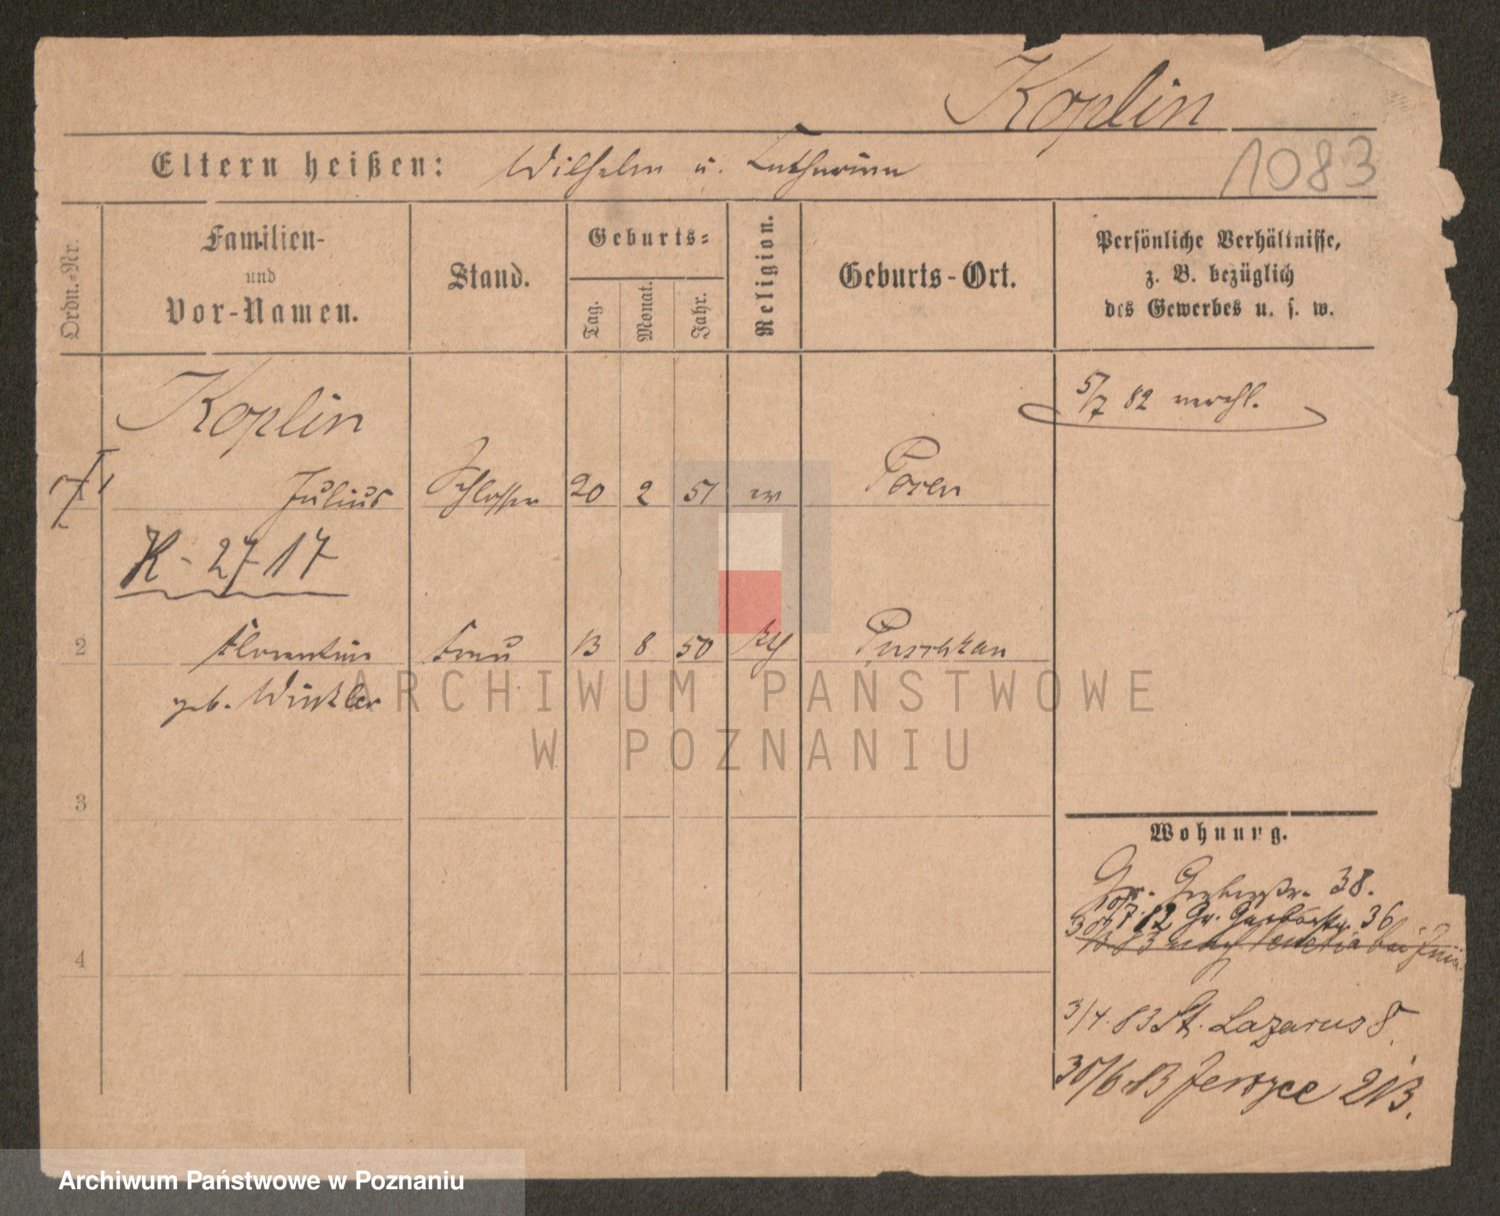 Koplin
Eltern heißen: Wilhelm u. Catharina
1083
Ordn.-Nr.
Familien-
und
Vor-Namen.
Stand.
Geburts-
Tag.
Monat.
Jahr.
Religion.
Geburts-Ort.
Persönliche Verhältnisse,
z. B. bezüglich
des Gewerbes u. s. w.
5/7 82 verehl.
Koplin
1 Julius Schlosser 20 2 51 ev Posen
K-2717
2 Florentine Frau 13 8 50 Puschkau
geb. Winkler
3
4
Wohnung.
Gr. Gerberstr. 38.
7.82 Gr. Gerberstr. 36
83 nach bei
3/4.83 St. Lazarus 8.
30/6.83 Jersyce 213.
ARCHIWUM PAŃSTWOWE
W POZNANIU
Archiwum Państwowe w Poznaniu